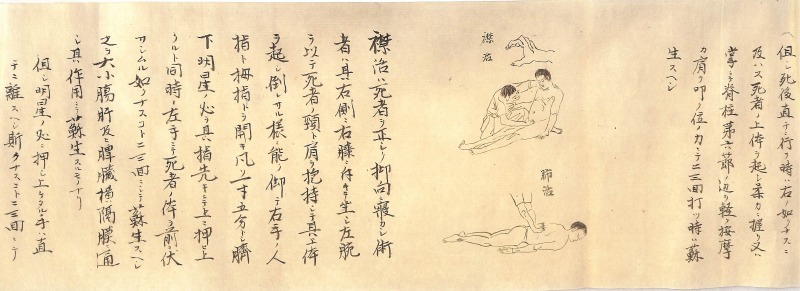 但シ死後直チニ行フ時ハ右ノ如クナスニ
及ハス死者ノ上体ヲ起シ柔カニ握リ又ハ
掌ニテ脊柱第六節ノ辺ヲ軽ク按摩
カ肩ヲ叩ク位ノ力ニテ二三回打ツ時ハ蘇
生スヘシ
襟治
肺治
襟治ハ死者ヲ正シク仰向ニ寝カシ術
者ハ其右側ニ右膝ニ付キ坐シ左腕
ヲ以テ死者ノ頸ト肩ヲ抱持シテ其上体
ヲ起シ倒レサル様ニ能ク仰テ右手ノ人
指ト拇指トヲ開キ凡ソ一寸五分シ臍
下明星ノ必ヲ其指先キニテ上ニ押シ上
クルト同時ニ左手ニテ死者ノ体ヲ前ニ伏
サシムル如クナスコト二三回ニシテ蘇生スヘシ
之ヲ大小腸肝及ヒ脾臓横隔膜ニ直
シ其作用ニテ蘇生スルモノナリ
但シ明星ノ必ニ押シ上ケタル手ハ直
チニ離スヘシ斯クナスコト二三回ニシテ